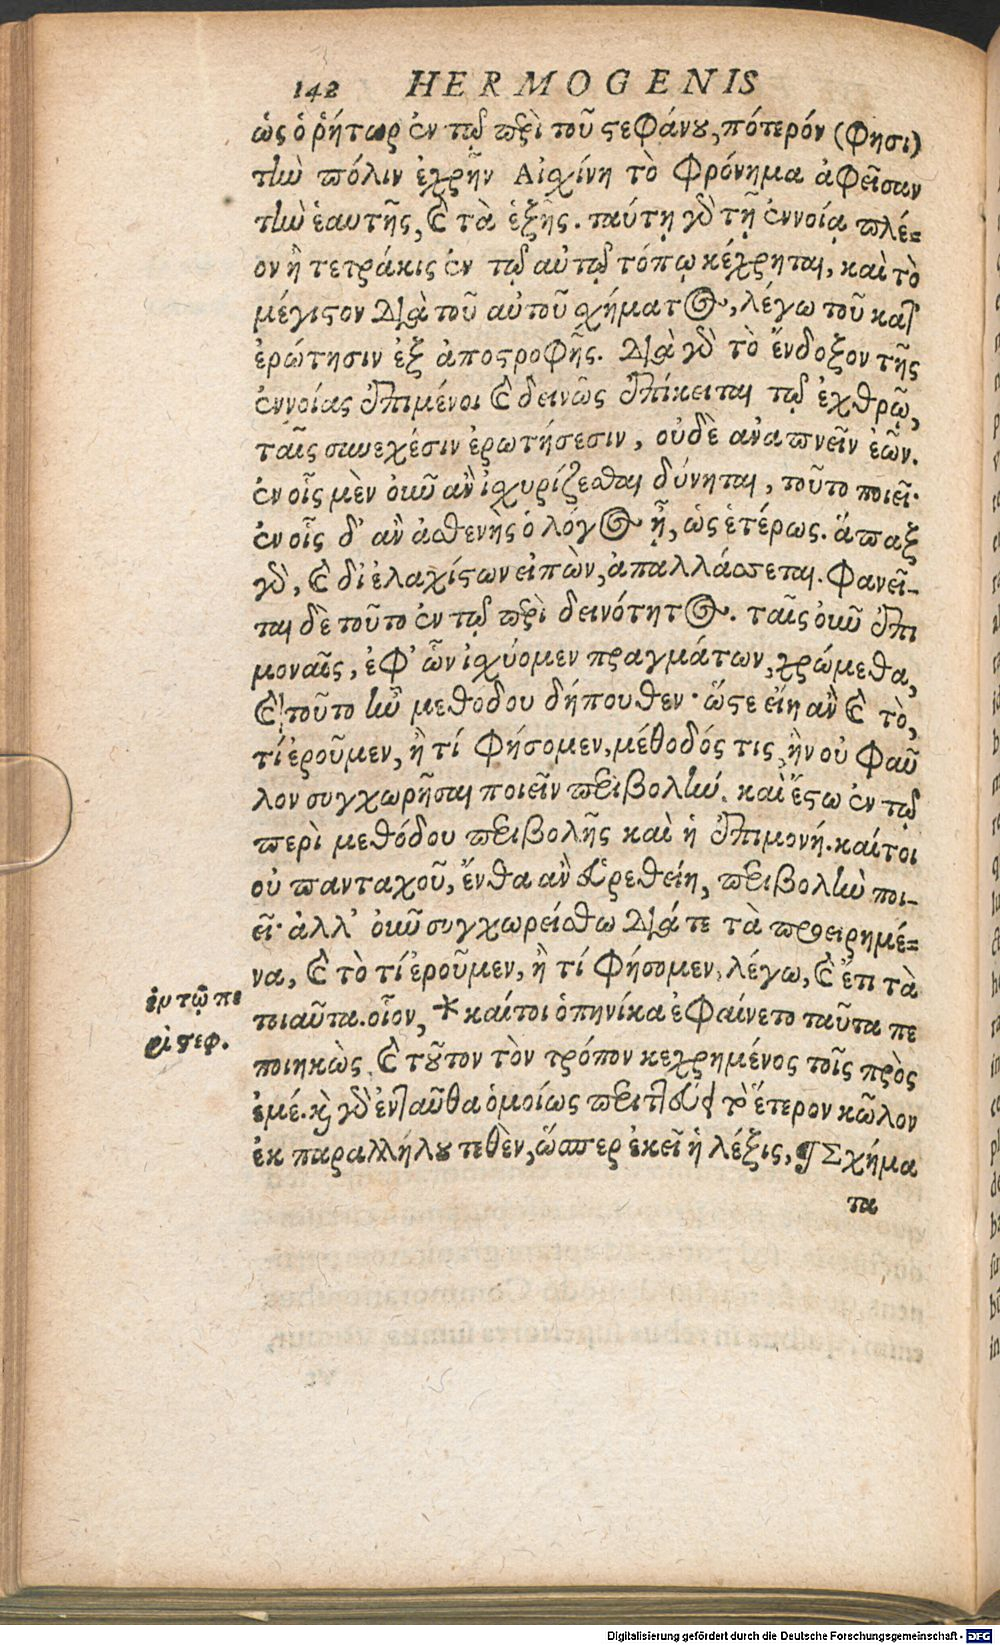 142 HERMOGENIS
ὡς ὁ ῥήτωρ ἐν τῷ περὶ τοῦ στεφάνου, πότερόν (φησι)
τὴν πόλιν ἐχρῆν Αἰσχίνη τὸ φρόνημα ἀφεῖσαν
τὴν ἑαυτῆς, καὶ τὰ ἑξῆς. ταύτῃ γὰρ τῇ ἐννοίᾳ πλέ=
ον ἢ τετράκις ἐν τῷ αὐτῷ τόπῳ κέχρηται, καὶ τὸ
μέγιστον διὰ τοῦ αὐτοῦ σχήματος, λέγω τοῦ κατ᾽
ἐρώτησιν ἐξ ἀποστροφῆς. διὰ γὰρ τὸ ἔνδοξον τῆς
ἐννοίας ἐπιμένοι καὶ δεινῶς ἐπίκειται τῷ ἐχθρῷ,
ταῖς συνεχέσιν ἐρωτήσεσιν, οὐδὲ ἀναπνεῖν ἐῶν.
ἐν οἷς μὲν οὖν ἂν ἰσχυρίζεσθαι δύνηται, τοῦτο ποιεῖ·
ἐν οἷς δ᾽ ἂν ἀσθενὴς ὁ λόγος ᾖ, ὡς ἑτέρως. ἅπαξ
γὰρ, καὶ δι᾽ ἐλαχίστων εἰπὼν, ἀπαλλάσσεται. φανεῖ-
ται δὲ τοῦτο ἐν τῷ περὶ δεινότητος. ταῖς οὖν ἐπι
μοναῖς, ἐφ᾽ ὧν ἰσχύομεν πραγμάτων, χρώμεθα,
καὶ τοῦτο ἦν μεθόδου δήπουθεν· ὥστε εἴη ἂν καὶ τὸ,
τί ἐροῦμεν, ἢ τί φήσομεν, μέθοδός τις, ἣν οὐ φαῦ
λον συγχωρῆσαι ποιεῖν περιβολήν. καὶ ἔστω ἐν τῷ
περὶ μεθόδου περιβολῆς καὶ ἡ ἐπιμονή. καίτοι
οὐ πανταχοῦ, ἔνθα ἂν εὑρεθείη, περιβολὴν ποι-
εῖ· ἀλλ᾽ οὖν συγχωρείσθω διά τε τὰ προειρημέ=
να, καὶ τὸ τί ἐροῦμεν, ἢ τί φήσομεν, λέγω, καὶ ἔτι τὰ
τοιαῦτα. οἷον, * καίτοι ὁπηνίκα ἐφαίνετο ταῦτα πε
ποιηκὼς καὶ τοῦτον τὸν τρόπον κεχρημένος τοῖς πρὸς
ἐμέ. καὶ γὰρ ἐνταῦθα ὁμοίως περιτεύει τὸ ἕτερον κῶλον
ἐκ παραλλήλου τεθὲν, ὥσπερ ἐκεῖ ἡ λέξις, ¶ Σχήμα
τα
ἐν τῷ πε
ρὶ στεφ.
Digitalisierung gefördert durch die Deutsche Forschungsgemeinschaft - DFG